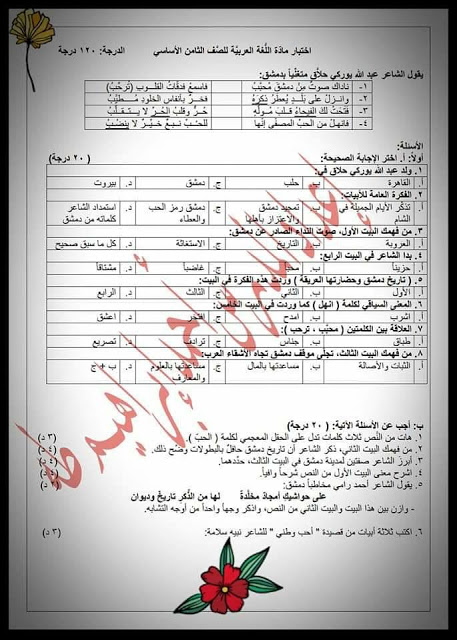 اختبار مادّة اللّغة العربيّة للصّف الثّامن الأساسي الدرجة: ١٢٠ درجة
يقول الشاعر عبد الله يوركي حلاق متغنّياً بدمشق:
١- ناداكَ صوتٌ مِنْ دمشقَ مُحَبَّبُ فاسمعْ فدقّاتُ القلوبِ (تُرَحِّبُ)
٢- وانزلْ على بَلَدٍ يُعطّرُ ذِكرَهُ فخرٌ بأنفاسِ الخلودِ مُطَيَّبُ
٣- فتحَتْ لكَ الفيحاءُ قلبَ مُولَّهٍ حُرٍّ وقلبُ الحُرِّ لا يتقلَّبُ
٤- فانهلْ من الحبِّ المصفّى إنّها للحُبِّ نبعٌ خيِّرٌ لا ينضبُ
الأسئلة:
أولاً: أ. اختر الإجابة الصحيحة: ( ٢٠ درجة)
١. ولد عبد الله يوركي حلاق في:
أ. القاهرة ب. حلب ج. دمشق د. بيروت
٢. الفكرة العامة للأبيات:
أ. تذكّر الأيام الجميلة في الشام ب. تمجيد دمشق والاعتزاز بأهلها ج. دمشق رمز الحب والعطاء د. استمداد الشاعر كلماته من دمشق
٣. من فهمك البيت الأول، صوت النداء الصادر عن دمشق:
أ. العروبة ب. التاريخ ج. الاستغاثة د. كل ما سبق صحيح
٤. بدا الشاعر في البيت الرابع:
أ. حزيناً ب. محباً ج. غاضباً د. مشتاقاً
٥. ( تاريخ دمشق وحضارتها العريقة ) وردت هذه الفكرة في البيت:
أ. الأول ب. الثاني ج. الثالث د. الرابع
٦. المعنى السياقي لكلمة ( انهل ) كما وردت في البيت الخامس:
أ. اشرب ب. امدح ج. افتخر د. اعشق
٧. العلاقة بين الكلمتين ( محبّب ، ترحب ):
أ. طباق ب. جناس ج. ترادف د. تصريع
٨. من فهمك البيت الثالث، تجلّى موقف دمشق تجاه الأشقاء العرب:
أ. الثبات والأصالة ب. مساعدتها بالمال ج. مساعدتها بالعلوم والمعارف د. ب + ج
ب: أجب عن الأسئلة الآتية: ( ٢٠ درجة)
١. هات من النّص ثلاث كلمات تدل على الحقل المعجمي لكلمة ( الحبّ ). (٣ د)
٢. من فهمك البيت الثاني، ذكر الشاعر أن تاريخ دمشق حافلٌ بالبطولات وضّح ذلك. (٤ د)
٣. أبرز الشاعر صفتين لمدينة دمشق في البيت الثالث، حدّدهما. (٤ د)
٤. اشرح معنى البيت الأول من النص شرحاً وافياً.
٥. يقول الشاعر أحمد رامي مخاطباً دمشق:
على حواشيكِ أمجادٌ مخلّدةٌ لها من الذِّكرِ تاريخٌ وديوان
- وازن بين هذا البيت والبيت الثاني من النص، واذكر وجهاً واحداً من أوجه التشابه.
٦. اكتب ثلاثة أبيات من قصيدة " أحب وطني " للشاعر نبيه سلامة: (٣ د)